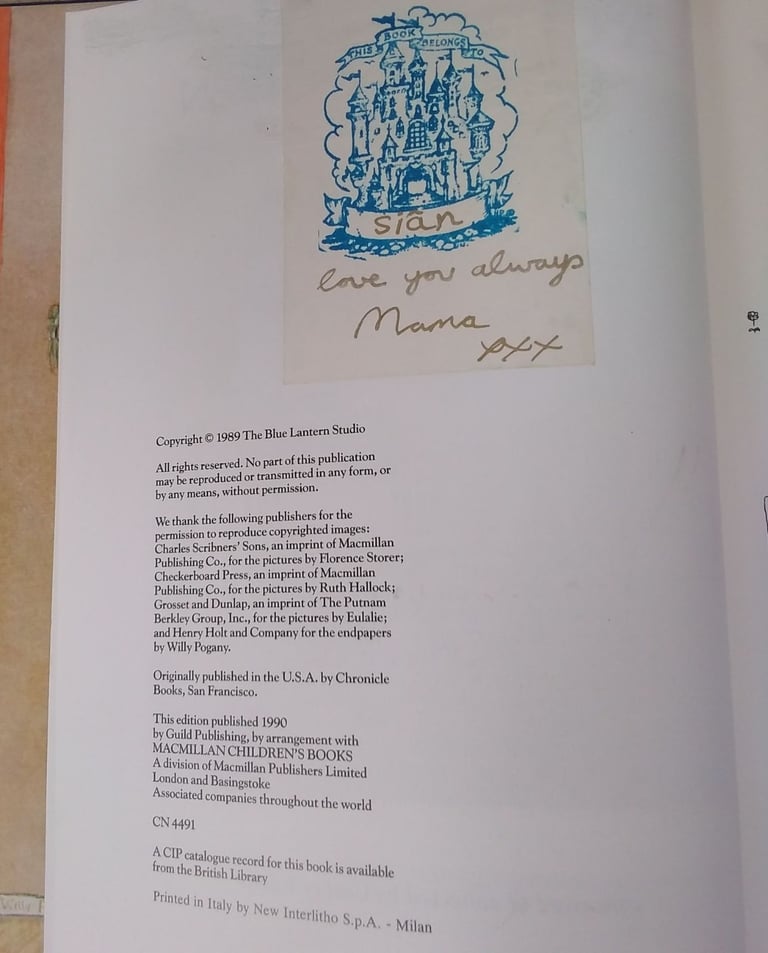 THIS BOOK BELONGS TO
siân
love you always
Mama
xxx
Copyright © 1989 The Blue Lantern Studio
All rights reserved. No part of this publication
may be reproduced or transmitted in any form, or
by any means, without permission.
We thank the following publishers for the
permission to reproduce copyrighted images:
Charles Scribners' Sons, an imprint of Macmillan
Publishing Co., for the pictures by Florence Storer;
Checkerboard Press, an imprint of Macmillan
Publishing Co., for the pictures by Ruth Hallock;
Grosset and Dunlap, an imprint of The Putnam
Berkley Group, Inc., for the pictures by Eulalie;
and Henry Holt and Company for the endpapers
by Willy Pogany.
Originally published in the U.S.A. by Chronicle
Books, San Francisco.
This edition published 1990
by Guild Publishing, by arrangement with
MACMILLAN CHILDREN'S BOOKS
A division of Macmillan Publishers Limited
London and Basingstoke
Associated companies throughout the world
CN 4491
A CIP catalogue record for this book is available
from the British Library
Printed in Italy by New Interlitho S.p.A. - Milan